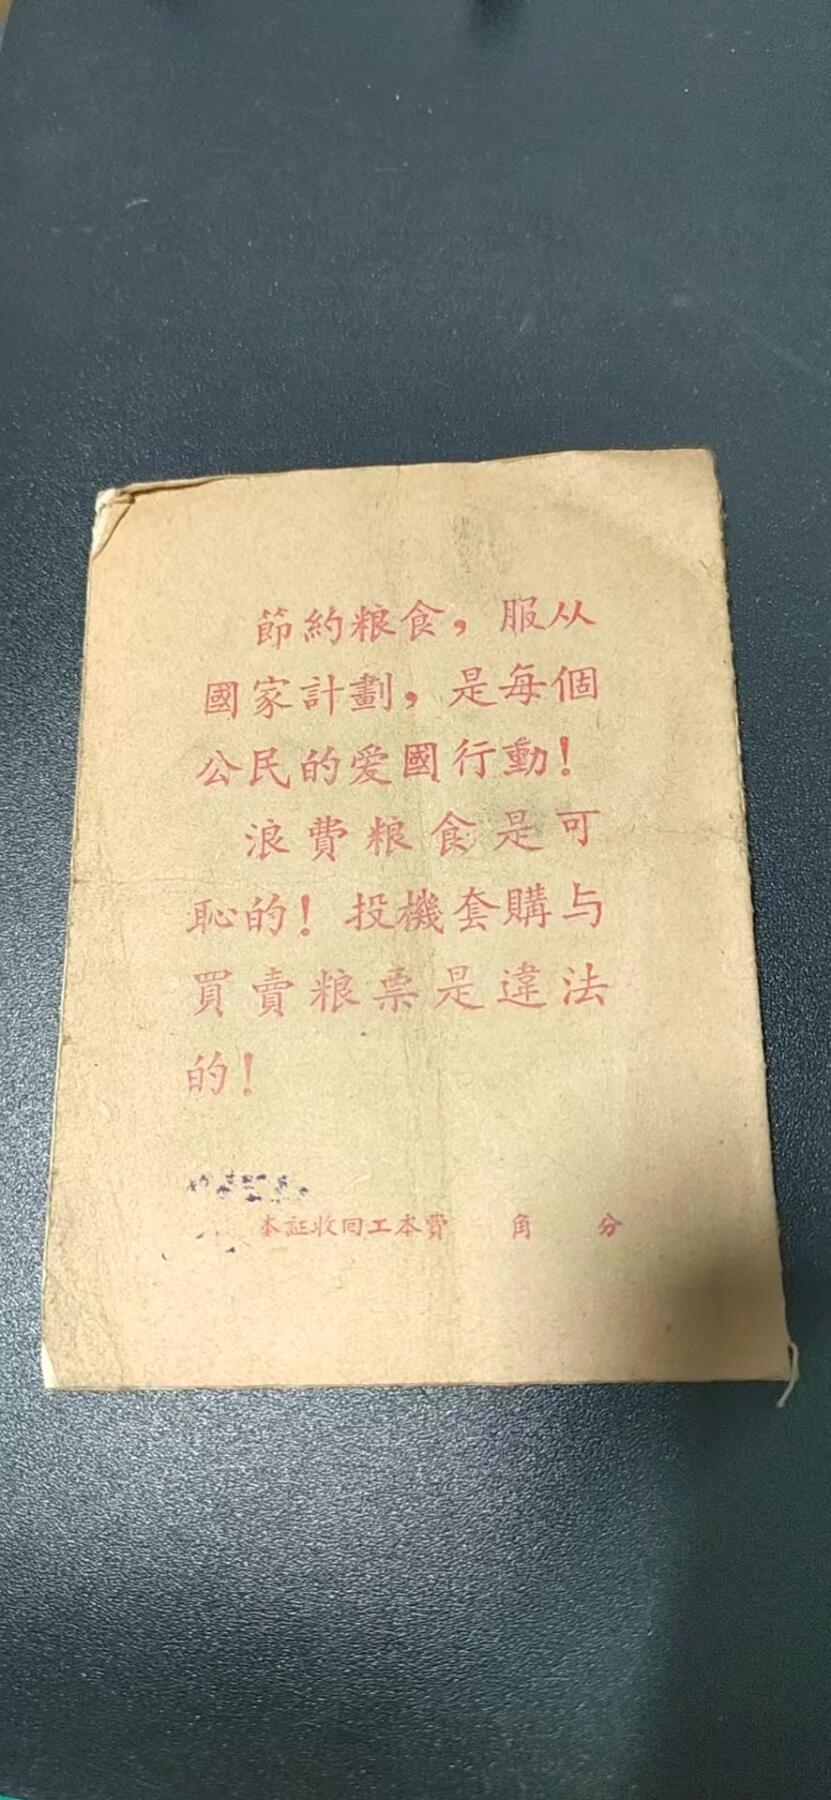 節約粮食，服从
國家計劃，是每個
公民的爱國行動！
浪費粮食是可
恥的！投機套購与
買賣粮票是違法
的！
本証收回工本費　角　分